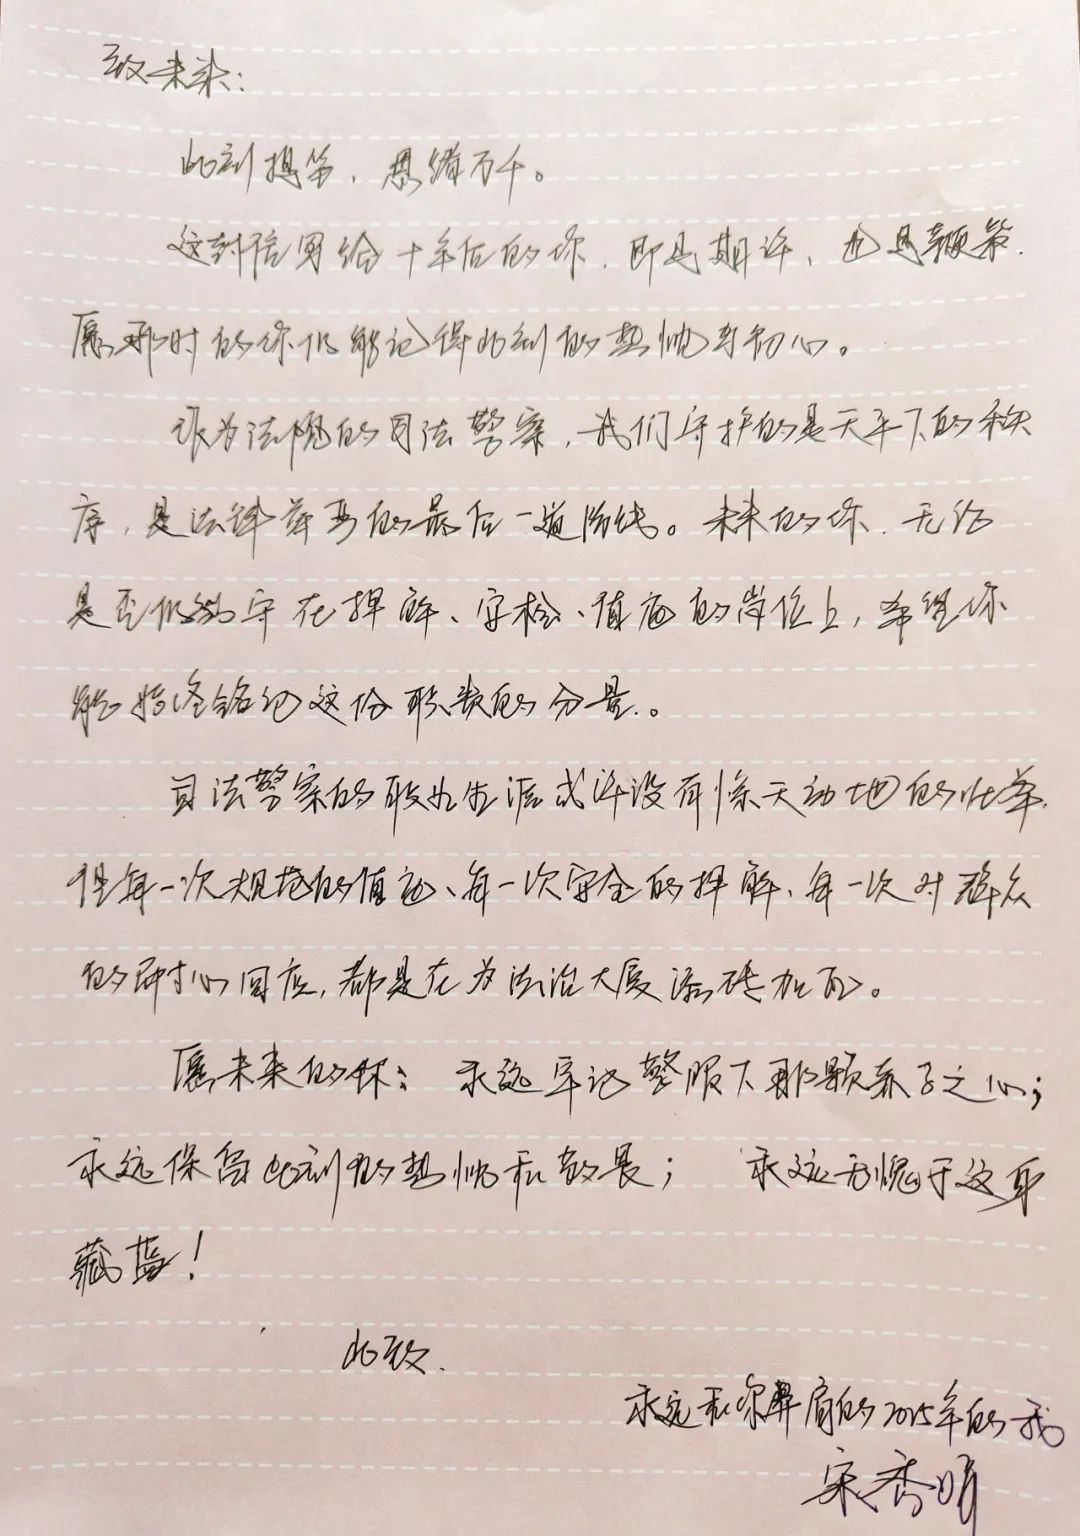 致未来：
此刻提笔，思绪万千。
这封信写给十年后的你，即是期许，也是鞭策.
愿那时的你仍能记得此刻的热忱与初心。
认为法院的司法警察，我们守护的是天平下的秩
序，是法律尊严的最后一道防线。未来的你，无论
是否仍驻守在押解、安检、值庭的岗位上，希望你
能始终铭记这份职责的分量。
司法警察的职业生涯或许没有惊天动地的壮举，
但每一次规范的值庭、每一次安全的押解、每一次对群众
的耐心回应，都是在为法治大厦添砖加瓦。
愿未来的你：永远牢记警服下那颗赤子之心；
永远保留此刻的热忱和敬畏；永远无愧于这身
藏蓝！
此致.
永远和你并肩的2025年的我
宋秀明